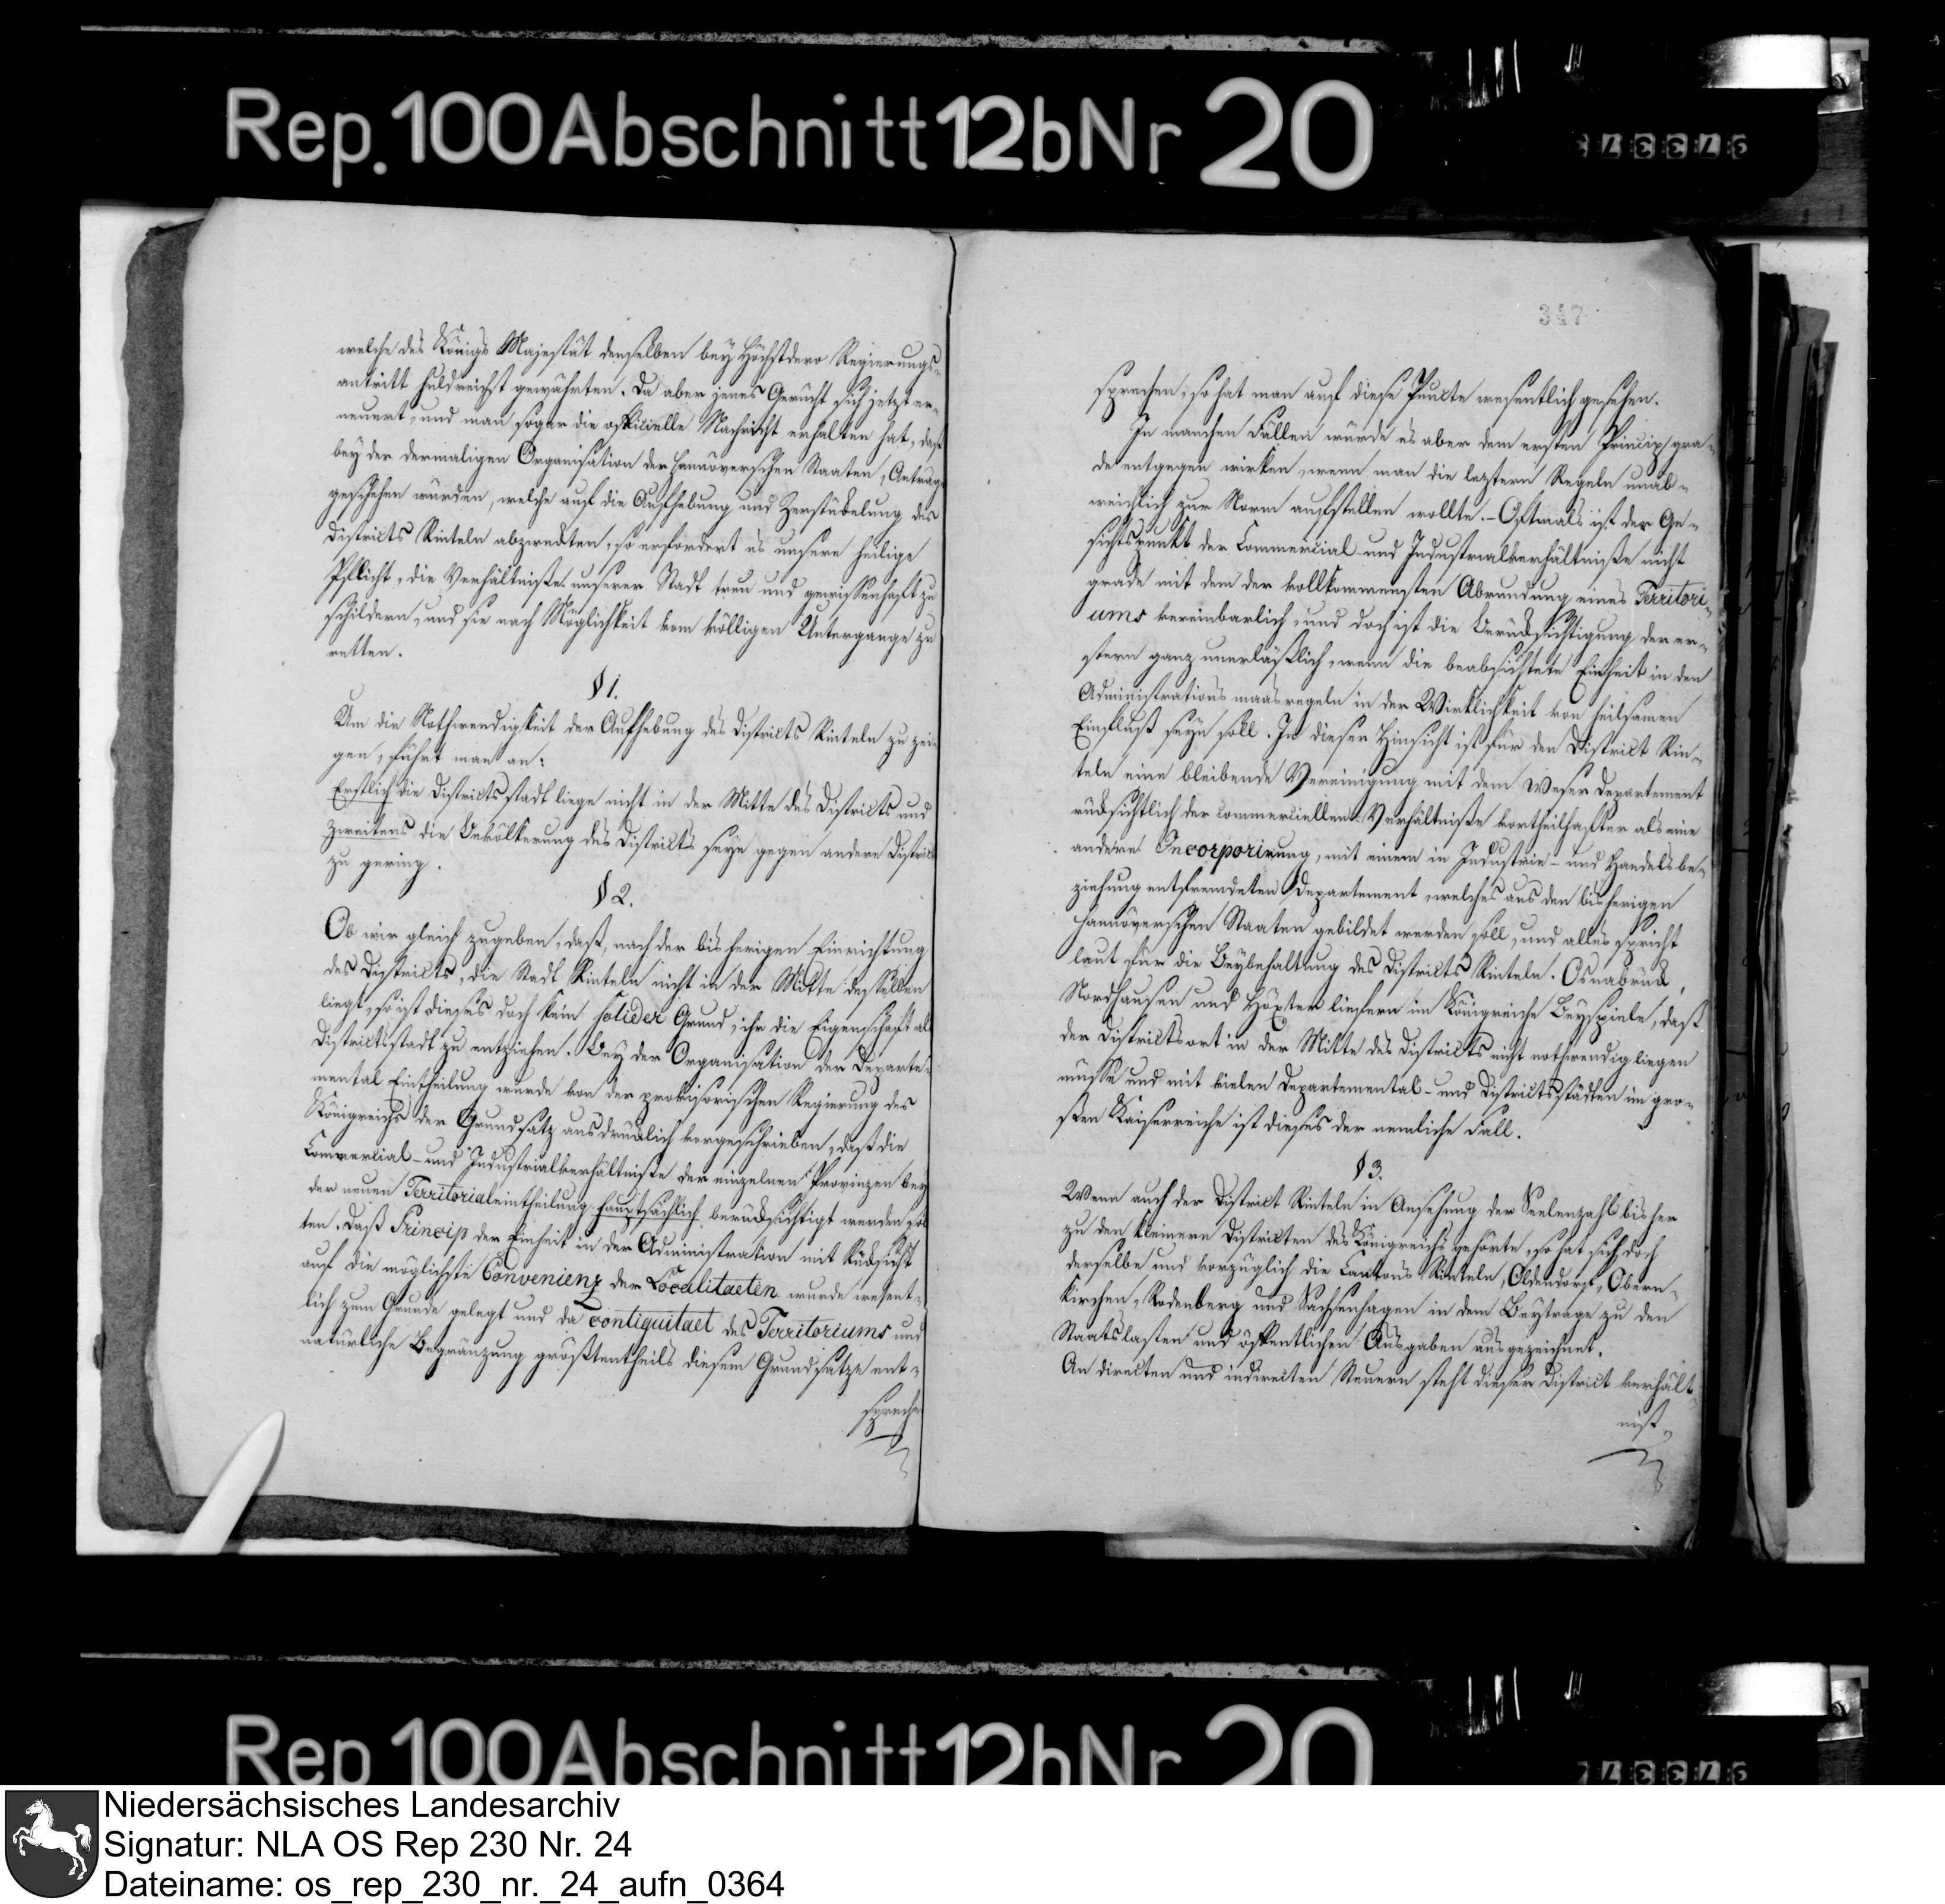 Rep. 100 Abschnitt 12b Nr 20
welche des Königs Majestät denselben bey Höchstdero Regierungs-
antritt huldreichst gewährten. Da aber jenes Gerücht sich jetzt er-
neuert, und man sogar die officielle Nachricht erhalten hat, daß
bey der dermaligen Organisation der Hannöverschen Staaten, Anträge
geschehen würden, welche auf die Aufhebung und Zerstückelung des
Districts Rinteln abzweckten, so erfordert es unsere heilige
Pflicht, die Verhältniße unserer Stadt treu und gewissenhaft zu
schildern, und sie nach Möglichkeit vom völligen Untergange zu
retten.
§ 1.
Um die Nothwendigkeit der Aufhebung des Districts Rinteln zu zei-
gen, führt man an:
Erstlich die Districtsstadt liege nicht in der Mitte des Districts und
zweitens die Bevölkerung des Districts seye gegen andere District
zu gering.
§ 2.
Ob wir gleich zugeben, daß, nach der bisherigen Einrichtung
des Districts, die Stadt Rinteln nicht in der Mitte desselben
liegt, so ist dieses doch kein solider Grund, ihr die Eigenschaft als
Districtsstadt zu entziehen. Bey der Organisation der Departe-
mental Eintheilung wurde von der provisorischen Regierung des
Königreichs der Grundsatz ausdrücklich vorgeschrieben, daß die
Commercial- und Industrialverhältniße der einzelnen Provinzen bey
der neuen Territorialeintheilung hauptsächlich berücksichtigt werden sol
ten. Daß Princip der Einheit in der Administration mit Rücksicht
auf die möglichste Convenienz der Localitaeten wurde wesent-
lich zum Grunde gelegt und da Contiguitaet des Territoriums und
natürliche Begränzung größtentheils diesem Grundsatze ent-
spreche
347
sprechen, so hat man auf diese Puncte wesentlich gesehen.
In manchen Fällen würde es aber dem ersten Princip gra-
de entgegen wirken, wenn man die leztern Regeln unab-
weichlich zur Norm aufstellen wollte. - Oftmals ist der Ge-
sichtspunkt der Commercial- und Industrialverhältniße nicht
grade mit dem der vollkommensten Abrundung eines Territori-
ums vereinbarlich, und doch ist die Berücksichtigung der er-
stern ganz unerläßlich, wenn die beabsichtete Einheit in den
Administrationsmaasregeln in der Wirklichkeit von heilsamen
Einfluß seyn soll. In dieser Hinsicht ist für den District Rin-
teln eine bleibende Vereinigung mit dem Weser Departement
rücksichtlich der commerciellen Verhältniße vortheilhafter als eine
andere Incorporirung, mit einem in Industrie- und Handelsbe-
ziehung entfremdeten Departement, welches aus den bisherigen
Hannöverschen Staaten gebildet werden soll, und alles spricht
laut für die Beybehaltung des Districts Rinteln. Osnabrück,
Nordhausen und Höxter liefern im Königreiche Beyspiele, daß
der Districtsort in der Mitte des Districts nicht nothwendig liegen
müsse und mit vielen Departemental- und Districtsstädten im gro-
ßen Kaiserreiche ist dieses der nemliche Fall.
§ 3.
Wenn auch der District Rinteln in Ansehung der Seelenzahl bisher
zu den kleinern Districten des Königreichs gehörte, so hat sich doch
derselbe und vorzüglich die Cantons Rinteln, Oldendorf, Obern-
kirchen, Rodenberg und Sachsenhagen in dem Beytrage zu den
Staatslasten und öffentlichen Ausgaben ausgezeichnet.
An directen und indirecten Steuern steht dieser District verhält-
niß-
Rep 100 Abschnitt 12b Nr 20
Niedersächsisches Landesarchiv
Signatur: NLA OS Rep 230 Nr. 24
Dateiname: os_rep_230_nr._24_aufn_0364